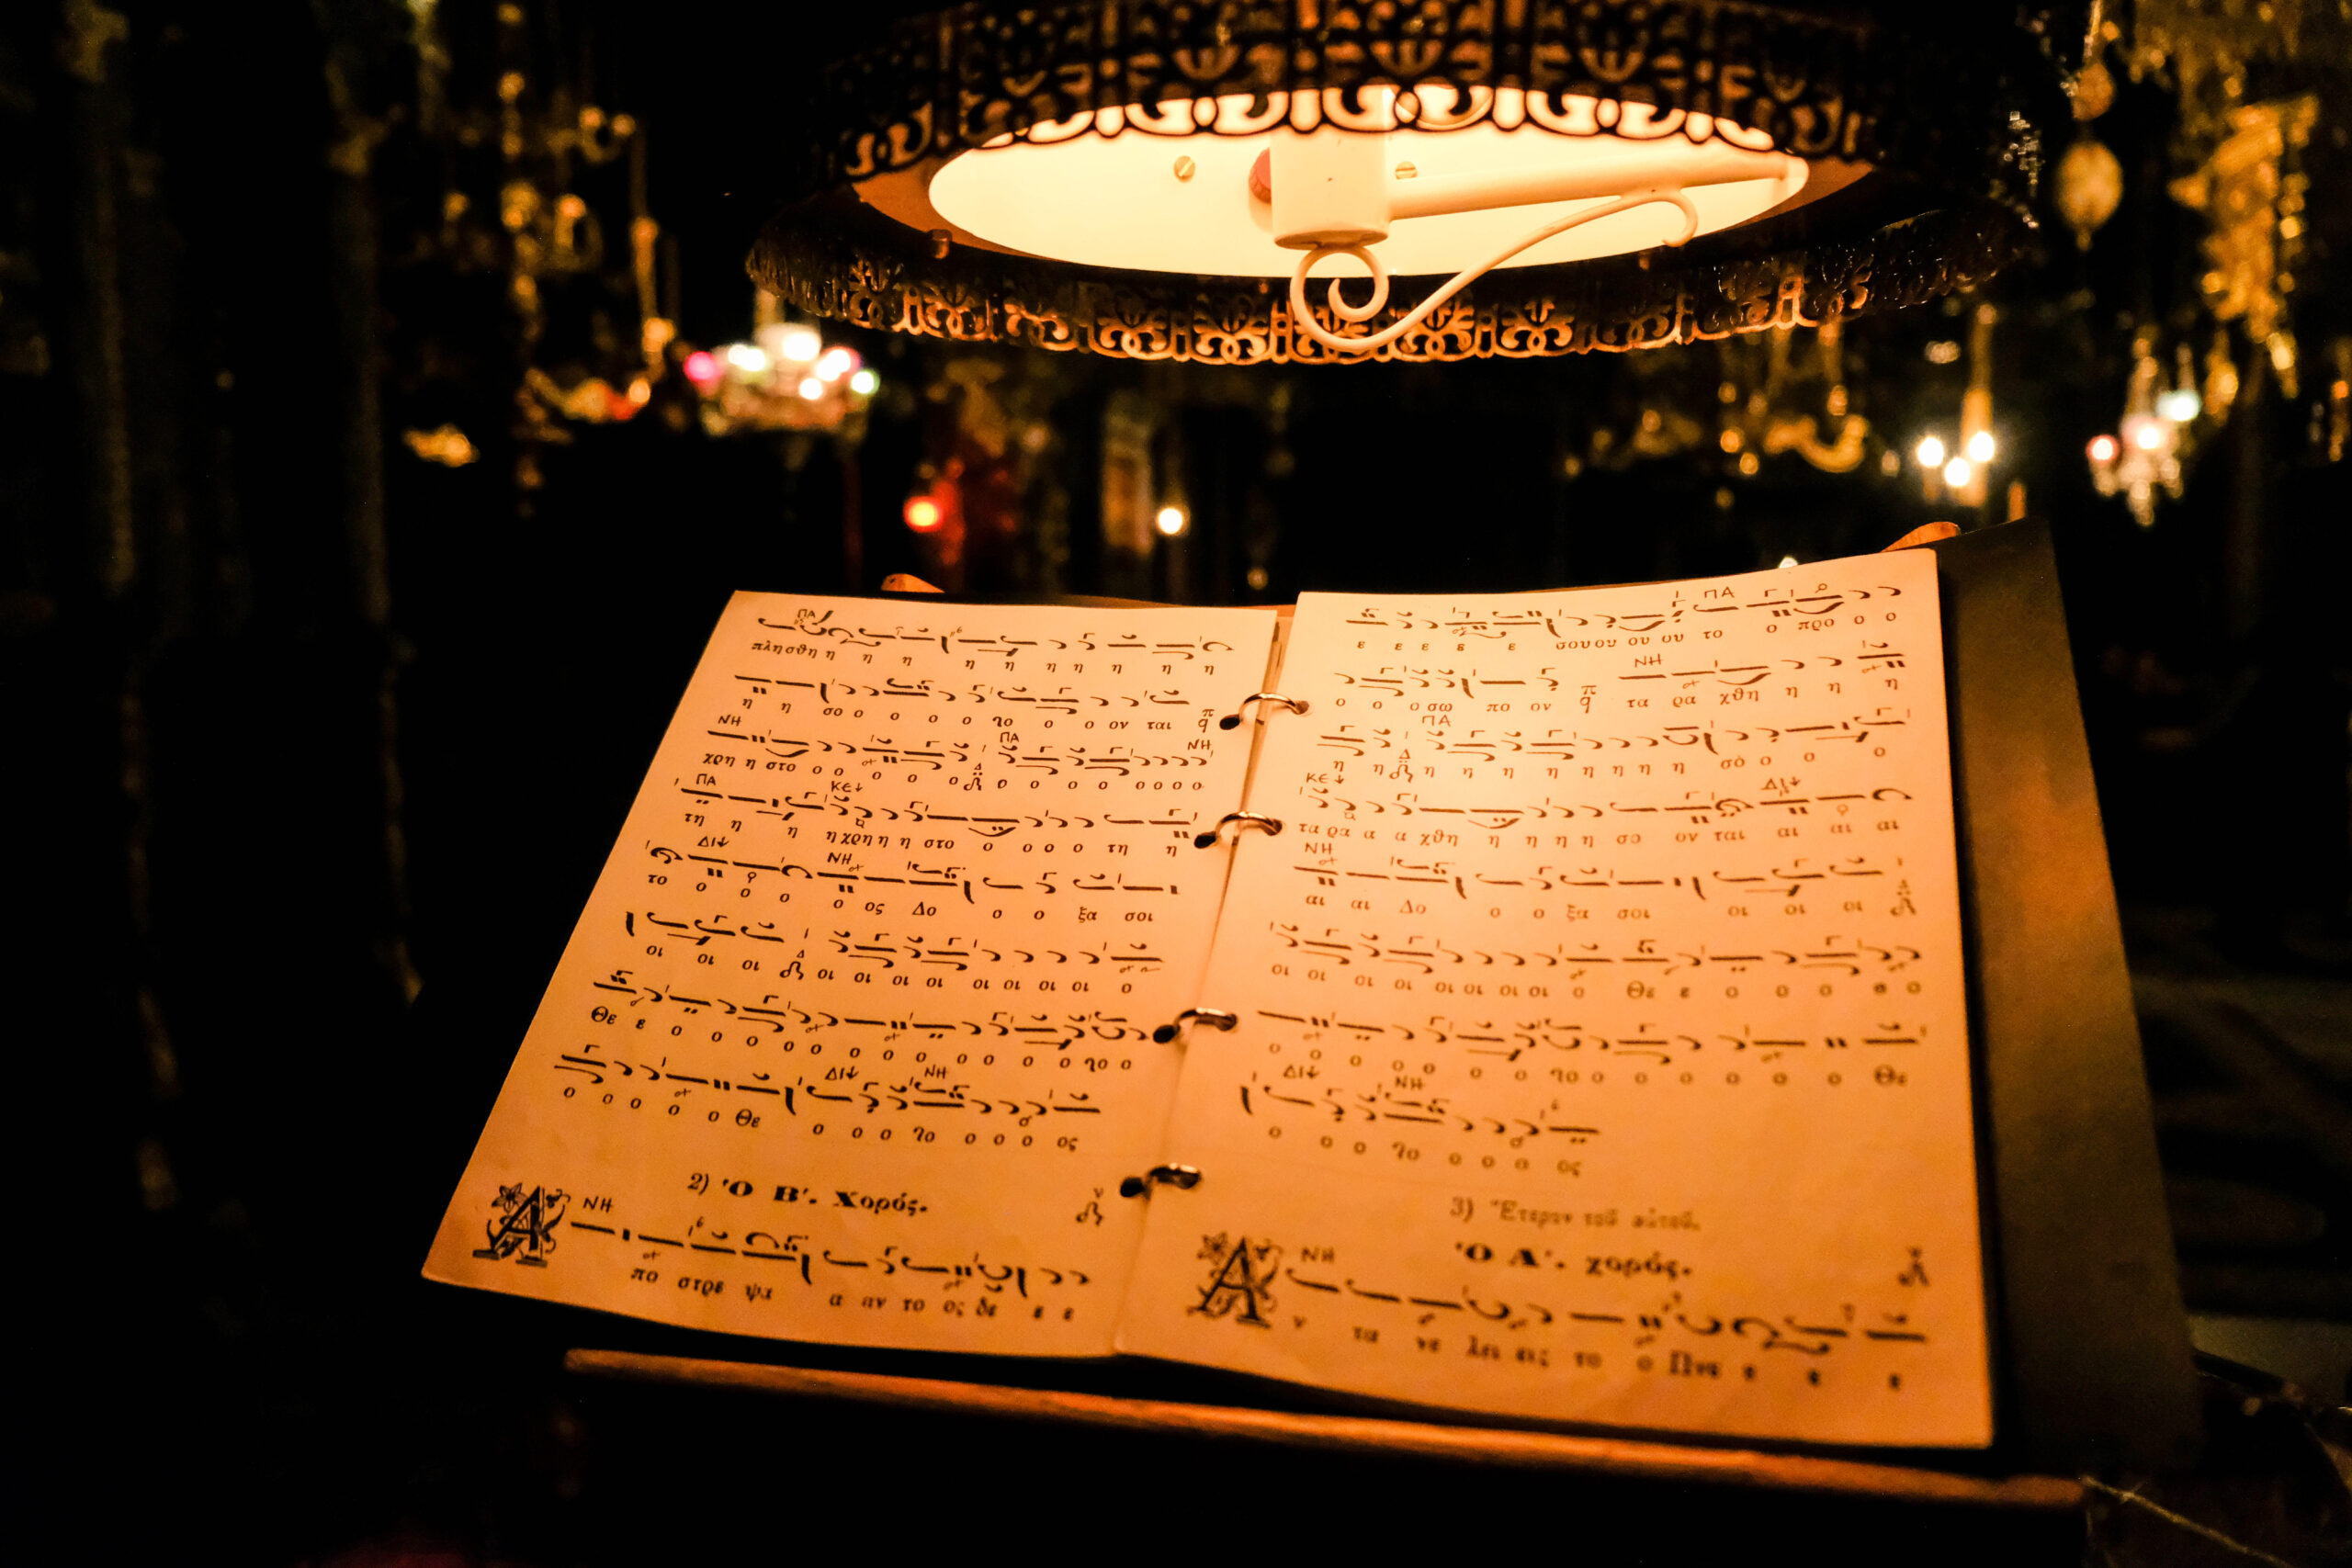 ΠΑ
πλησθη η η η η η η η η η η
η η σο ο ο ο ο ηο ο ο ον ται π q
ΝΗ ΠΑ ΝΗ
χρη η στο ο ο ο ο ο Δ ο ο ο ο ο ο ο ο
ΠΑ ΚΕ↓
τη η η η χρη η η στο ο ο ο ο τη η
ΔΙ↓ ΝΗ
το ο ο ο ο ος Δο ο ο ξα σοι
οι οι οι Δ οι οι οι οι οι οι οι οι ο
Θε ε ο ο ο ο ο ο ο ο ο ο ο ο ηο ο
ΔΙ↓ ΝΗ
ο ο ο ο ο Θε ο ο ο ηο ο ο ο ος
2) Ὁ Β'. Χορός. ν
Α ΝΗ
πο στρε ψα α αν το ος δε ε ε
ΠΑ
ε ε ε ε ε σου ου ου ου το ο προ ο ο
ΝΗ
ο ο ο σω πο ον π q τα ρα χθη η η η
ΠΑ
η η Δ η η η η η η η η σὸ ο ο ο
ΚΕ↓ ΔΙ↓
τα ρα α α χθη η η η η σο ον ται αι αι αι
ΝΗ
αι αι Δο ο ο ξα σοι οι οι οι Δ
οι οι οι οι οι οι οι οι ο Θε ε ο ο ο ο ο
ο ο ο ο ο ο ο ηο ο ο ο ο ο ο Θε
ΔΙ↓ ΝΗ
ο ο ο ηο ο ο ο ος
3) Ἕτερον τοῦ αὐτοῦ.
Ὁ Α'. χορός.
Α ΝΗ
ν τα νε λει εις το ο Πνε ε ε ε